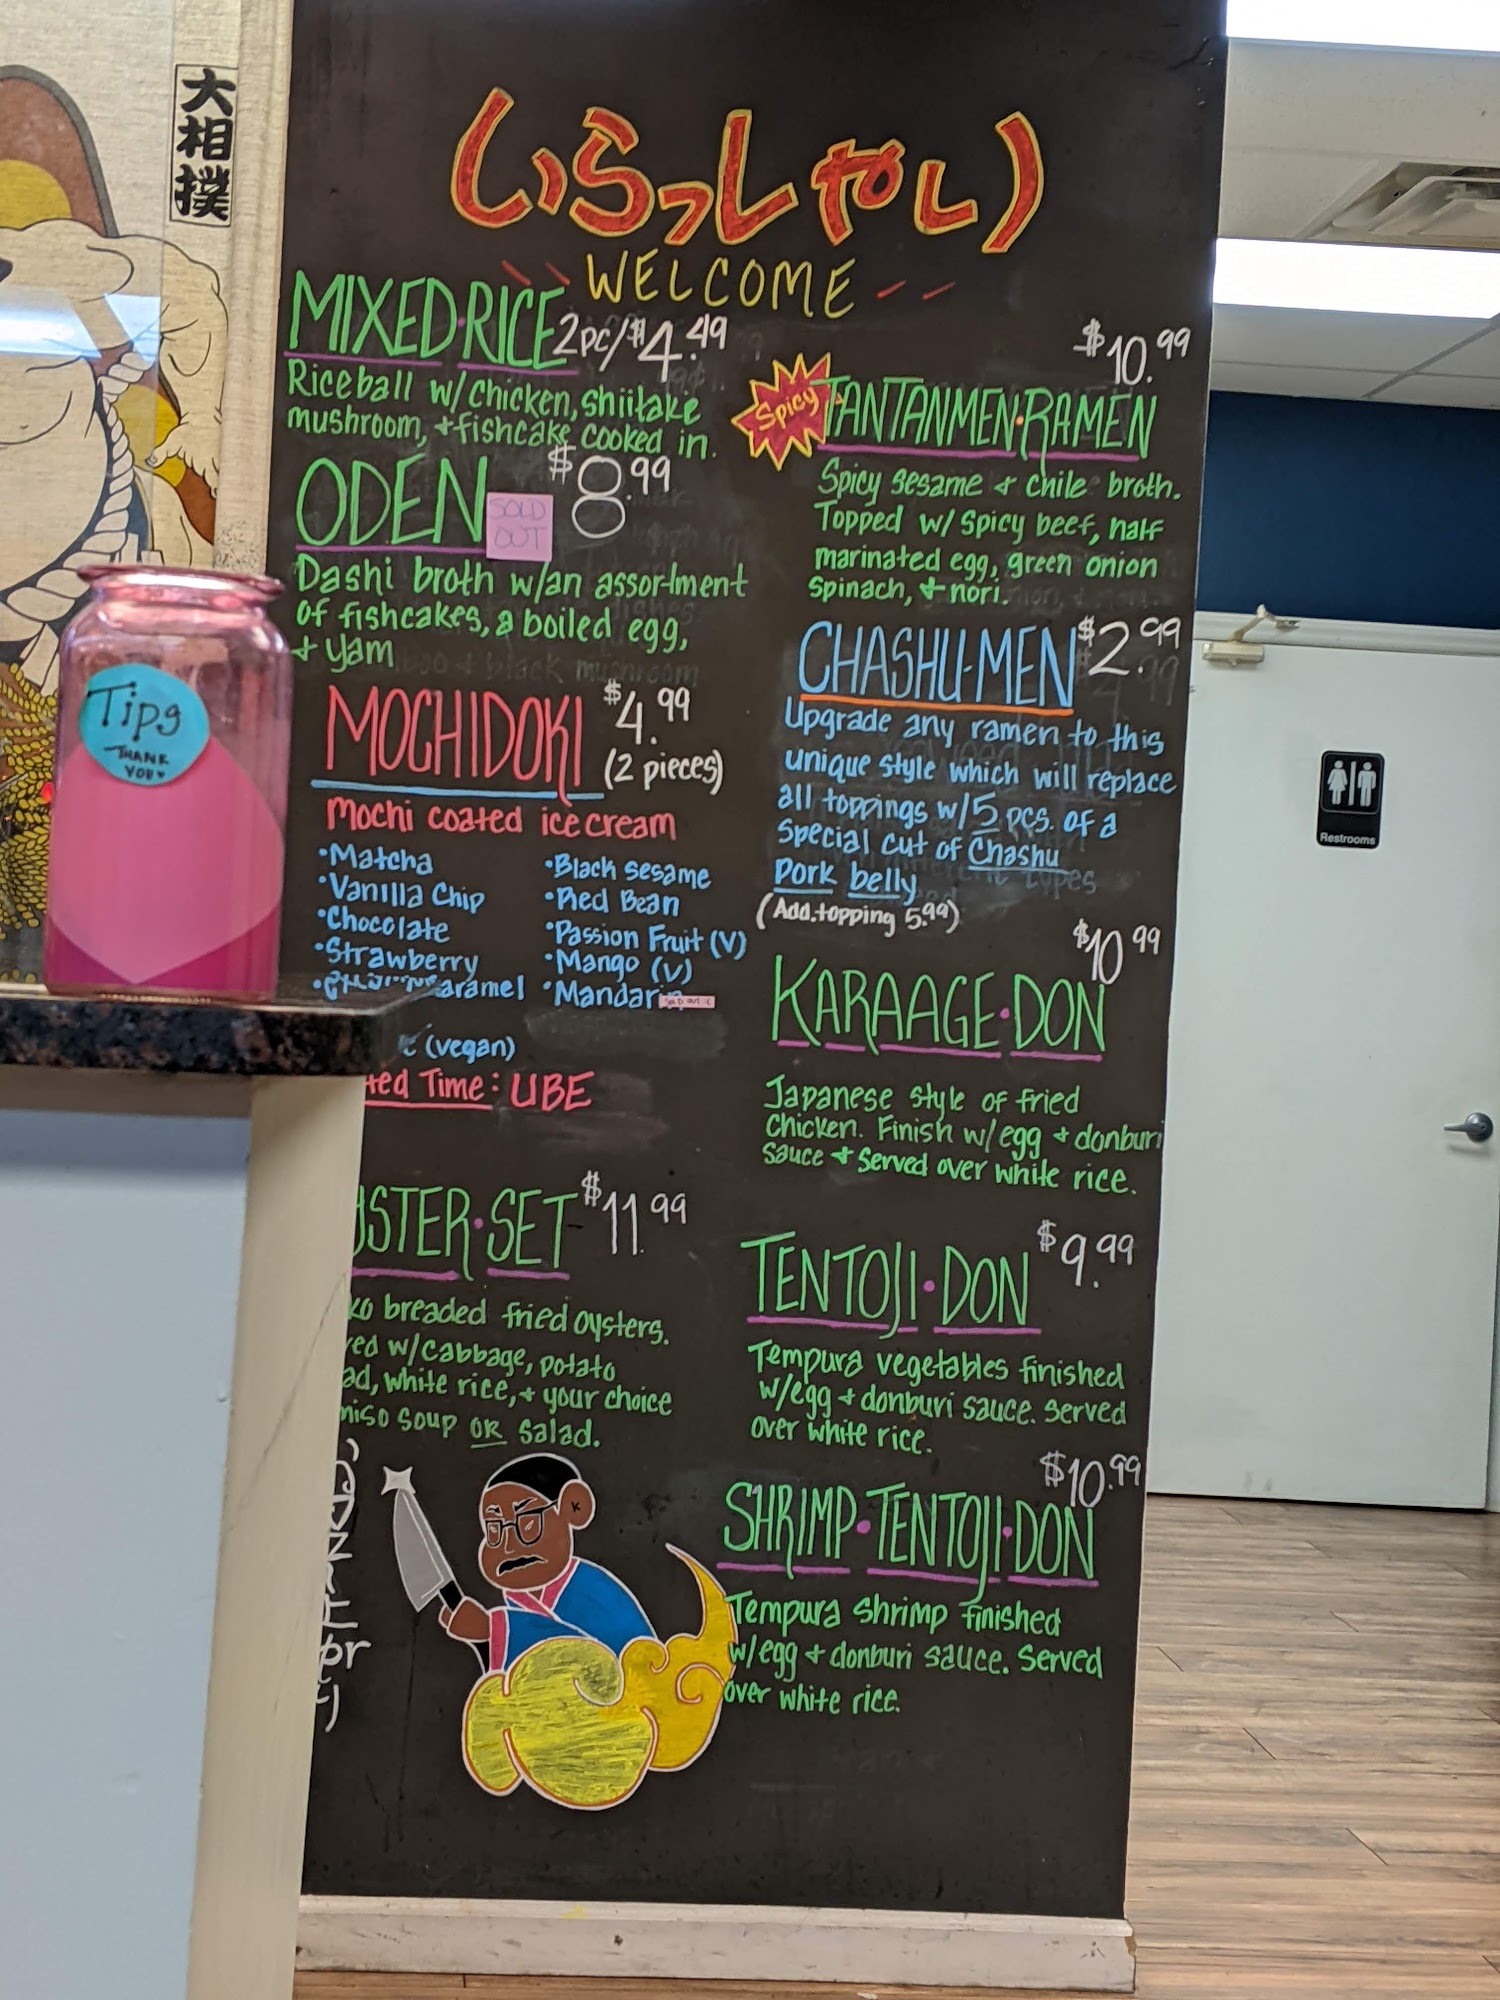 大相撲
いらっしゃい
WELCOME
MIXED·RICE 2pc/$4.49
Riceball w/chicken, shiitake
mushroom, + fishcake cooked in.
ODEN $8.99
SOLD
OUT
Dashi broth w/an assortment
of fishcakes, a boiled egg,
+ yam
MOCHIDOKI $4.99
(2 pieces)
Mochi coated ice cream
•Matcha
•Vanilla Chip
•Chocolate
•Strawberry
•Black sesame
•Red Bean
•Passion Fruit (V)
•Mango (V)
•Mandarin
SOLD OUT
(vegan)
Time: UBE
SET $11.99
breaded fried oysters.
w/cabbage, potato
white rice, + your choice
miso soup OR salad.
K
$10.99
Spicy TANTANMEN·RAMEN
Spicy sesame + chile broth.
Topped w/ spicy beef, half
marinated egg, green onion
spinach, + nori.
CHASHU-MEN $2.99
Upgrade any ramen to this
unique style which will replace
all toppings w/5 pcs. of a
special cut of Chashu
pork belly
(Add. topping 5.99)
$10.99
KARAAGE·DON
Japanese style of fried
chicken. Finish w/egg + donburi
sauce + served over white rice.
TENTOJI·DON $9.99
Tempura vegetables finished
w/egg + donburi sauce. Served
over white rice.
$10.99
SHRIMP·TENTOJI·DON
Tempura shrimp finished
w/egg + donburi sauce. Served
over white rice.
Tips
THANK
YOU♥
Restrooms